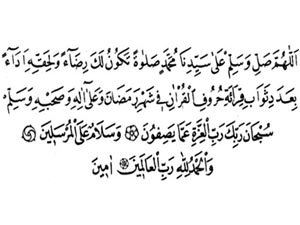 اَللّٰهُمَّ صَلِّ وَسَلِّمْ عَلٰى سَيِّدِنَا مُحَمَّدٍ صَلٰوةً تَكُونُ لَكَ رِضَاۤءً وَلِحَقِّهِ اَدَاۤءً
بِعَدَدِ ثَوَابِ قِرَاۤئَةِ حُرُوفِ الْقُرْاٰنِ فِي شَهْرِ رَمَضَانَ وَعَلٰى اٰلِهِ وَصَحْبِهِ وَسَلِّمْ
سُبْحَانَ رَبِّكَ رَبِّ الْعِزَّةِ عَمَّا يَصِفُونَ وَسَلَامٌ عَلَى الْمُرْسَلِينَ
وَالْحَمْدُ لِلّٰهِ رَبِّ الْعَالَمِينَ اٰمِينَ